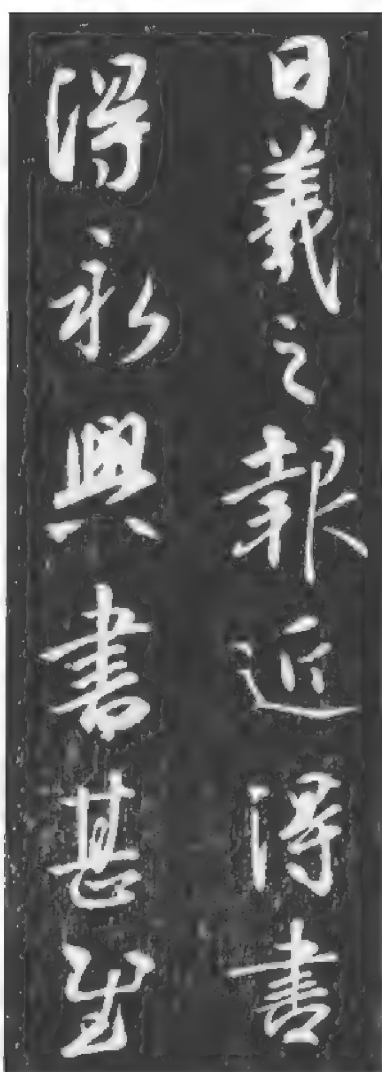 日羲之報近得書
得永興書甚慰